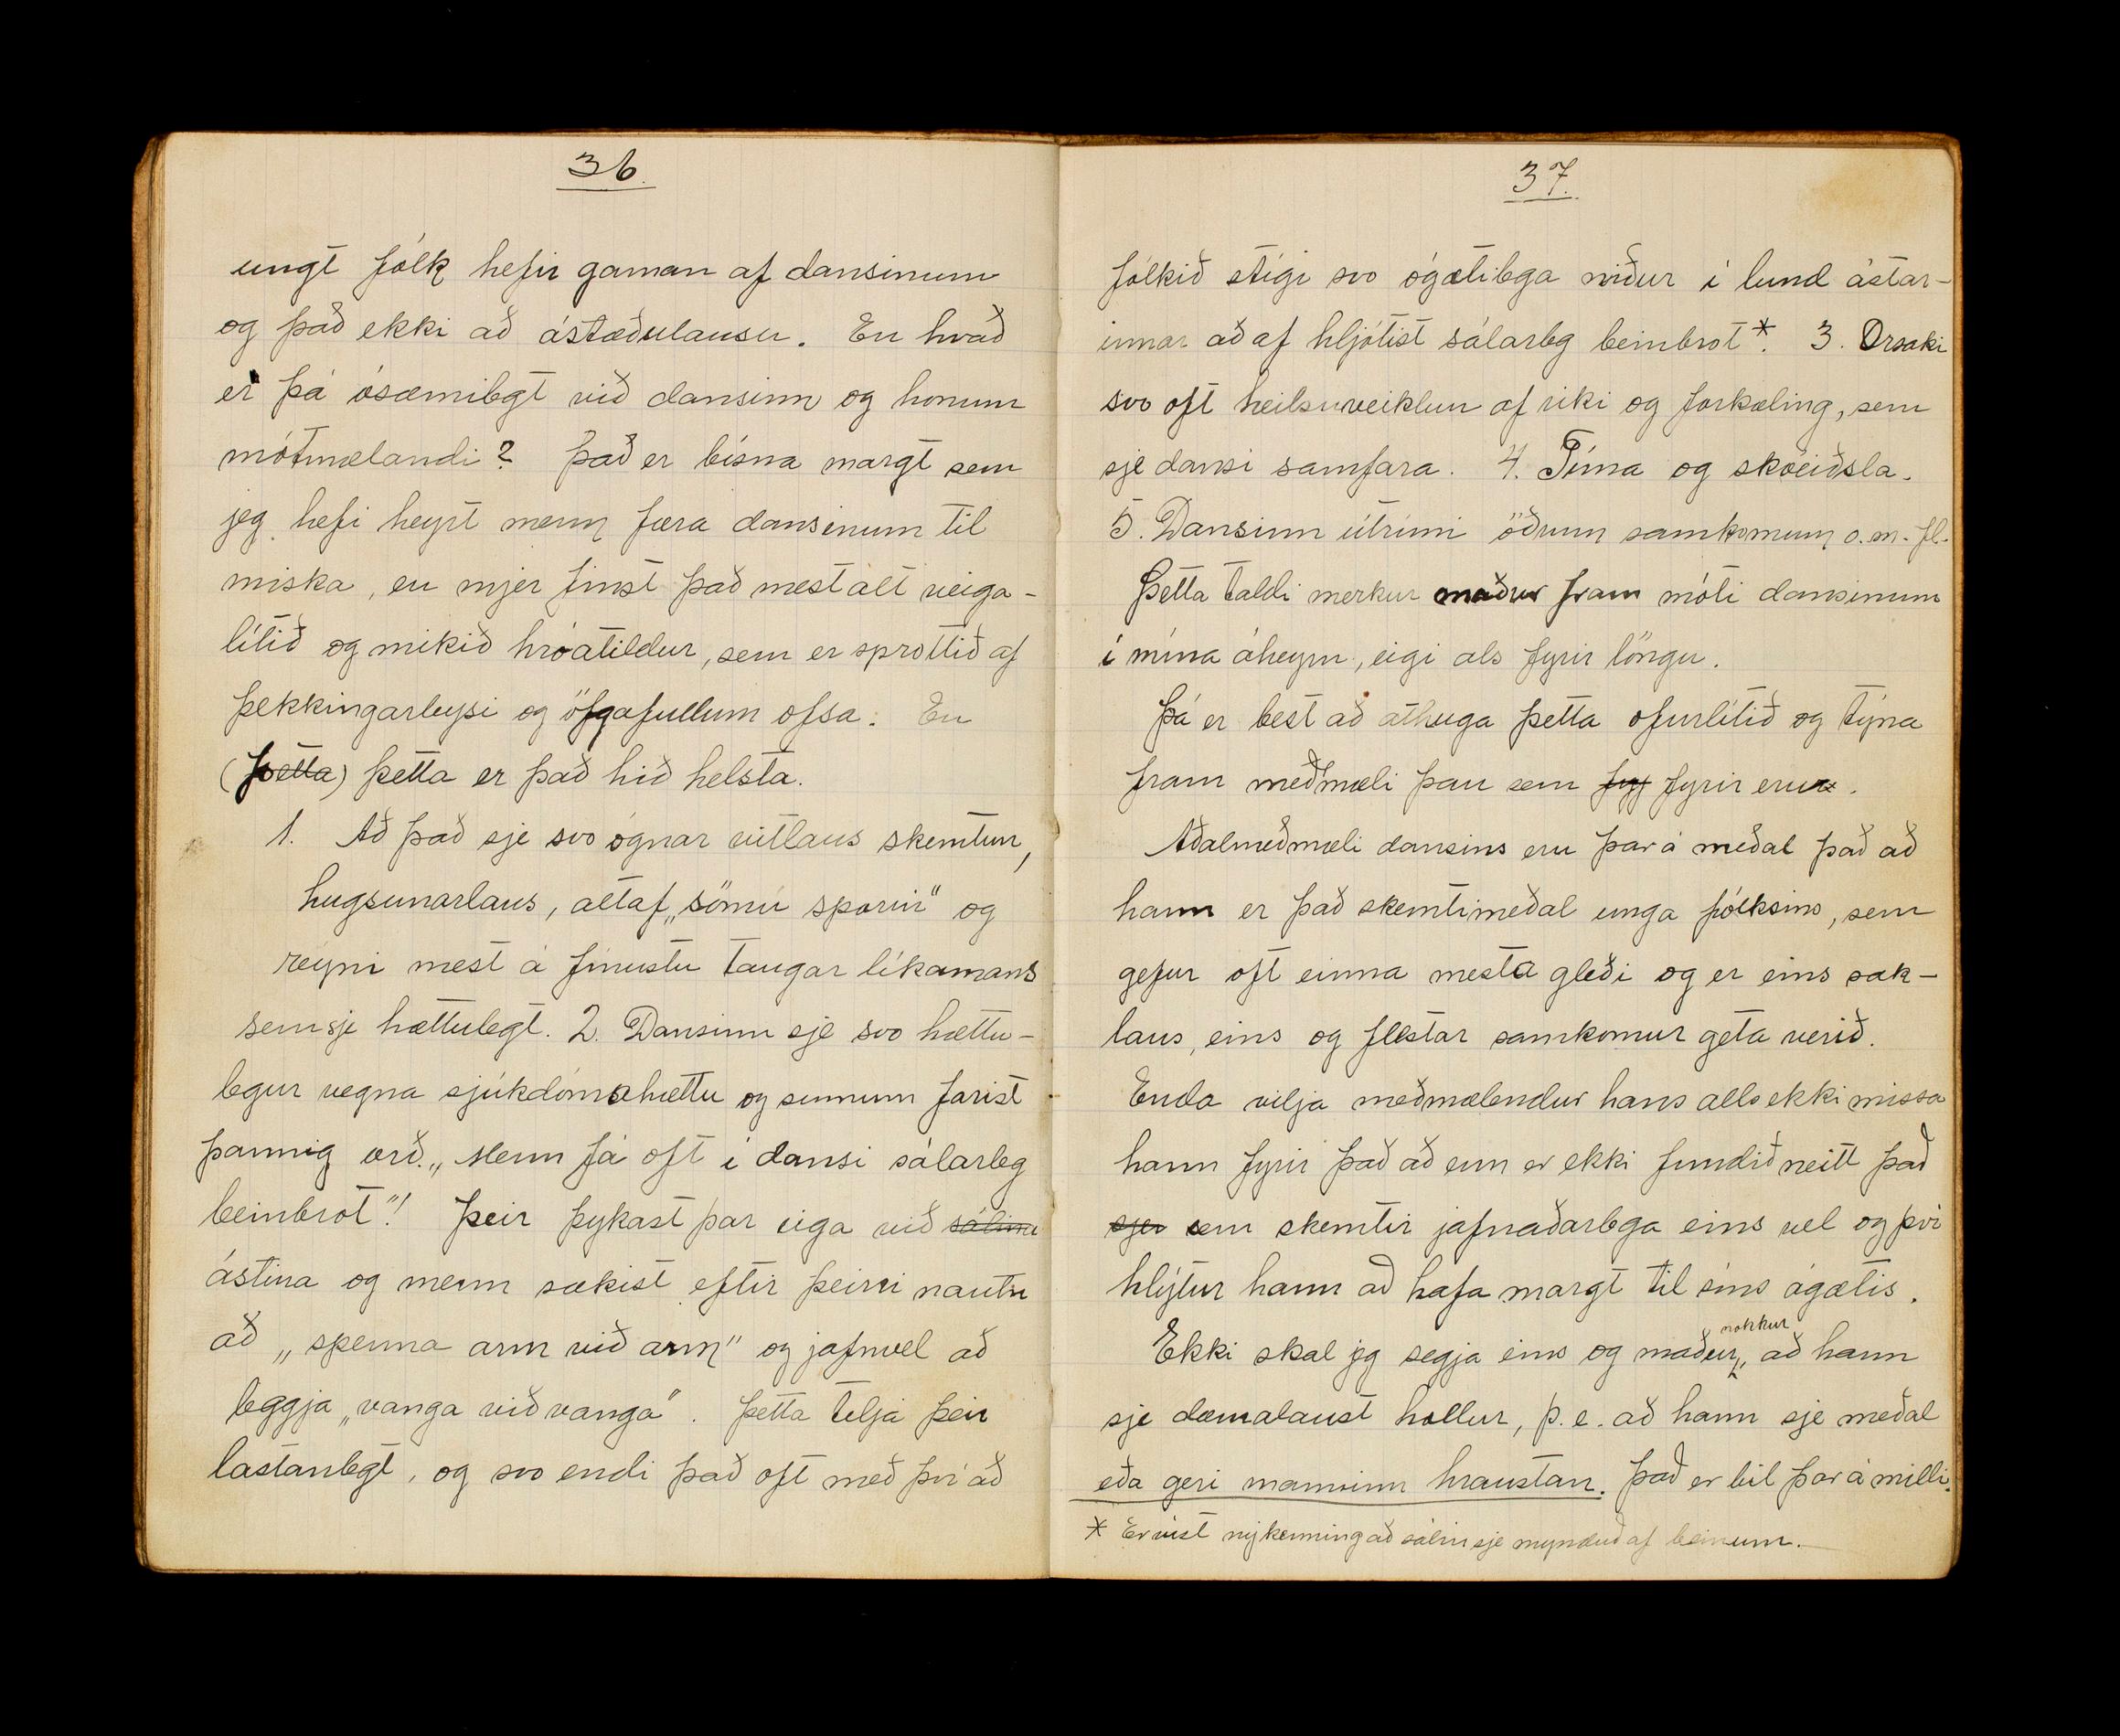 36.
ungt fólk hefir gaman af dansinum
og það ekki að ástæðulausu. En hvað
er þá ósæmilegt við dansinn og honum
mótmælandi? Það er bísna margt sem
jeg hefi heyrt menn færa dansinum til
miska, en mjer finst það mest alt veiga-
lítið og mikið hróatildur, sem er sprottið af
þekkingarleysi og öfgafullum ofsa. En
(þetta) þetta er það hið helsta.
1. Að það sje svo ógnar vitlaus skemtun,
hugsunarlaus, altaf „sömu sporin" og
reyni mest á fínustu taugar líkamans
sem sje hættulegt. 2. Dansinn sje svo hættu-
legur vegna sjúkdómahættu og sumum farist
þannig orð. „Menn fá oft í dansi sálarleg
beinbrot"! Þeir þykast þar eiga við sálina
ástina og menn sækist eftir þeirri nautn
að „spenna arm við arm" og jafnvel að
leggja „vanga við vanga". Þetta telja þeir
lastanlegt, og svo endi það oft með því að
37.
fólkið stígi svo ógætilega niður í lund ástar-
innar að af hljótist sálarleg beinbrot*. 3. Orsaki
svo oft heilsuveiklun af riki og forkæling, sem
sje dansi samfara. 4. Tíma og skóeiðsla.
5. Dansinn útrími öðrum samkomum o.m.fl.
Þetta taldi merkur maður fram móti dansinum
í mína áheyrn, eigi als fyrir löngu.
Þá er best að athuga þetta ofurlítið og týna
fram meðmæli þau sem fyf fyrir eru.
Aðalmeðmæli dansins eru þar á meðal það að
hann er það skemtimeðal unga fólksins, sem
gefur oft einna mesta gleði og er eins sak-
laus, eins og flestar samkomur geta verið.
Enda vilja meðmælendur hans alls ekki missa
hann fyrir það að enn er ekki fundið neitt það
sjer sem skemtir jafnaðarlega eins vel og því
hlýtur hann að hafa margt til síns ágætis.
Ekki skal jeg segja eins og maður nokkur, að hann
sje dæmalaust hollur, þ.e. að hann sje meðal
eða geri manninn hraustan. Það er bil þar á milli.
* Er víst ný kenning að sálin sje mynduð af beinum.